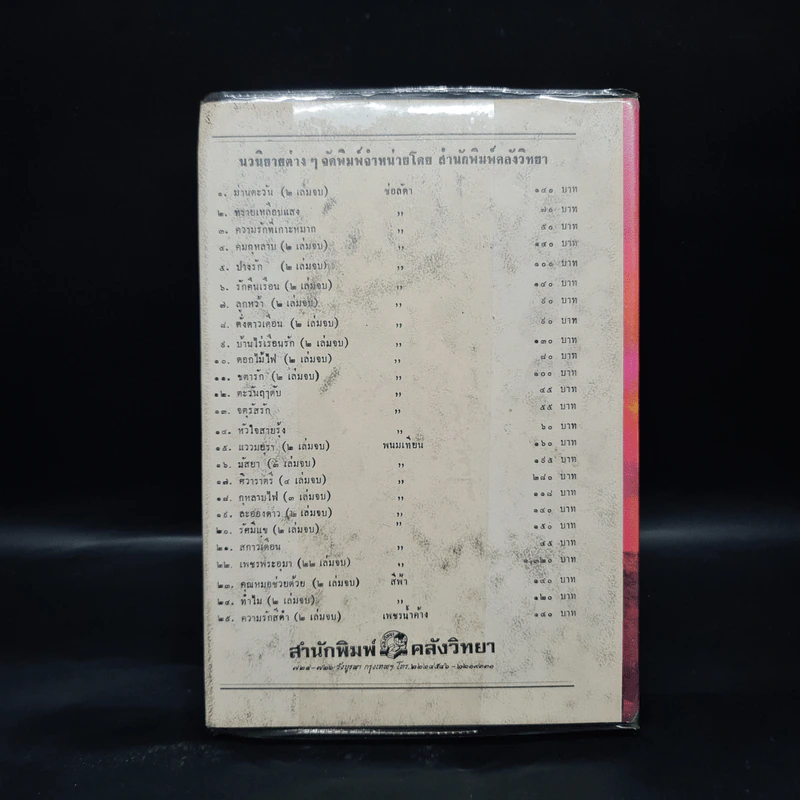 นวนิยายต่าง ๆ จัดพิมพ์จำหน่ายโดย สำนักพิมพ์คลังวิทยา
๑. ม่านตะวัน (๒ เล่มจบ) ช่อลัดา ๑๔๐ บาท
๒. ทรายเหลือบแสง ,, ๗๐ บาท
๓. ความรักที่เกาะหมาก ,, ๕๐ บาท
๔. คมกุหลาบ (๒ เล่มจบ) ,, ๑๔๐ บาท
๕. ปางรัก (๒ เล่มจบ) ,, ๑๐๐ บาท
๖. รักคืนเรือน (๒ เล่มจบ) ,, ๑๔๐ บาท
๗. ลูกหว้า (๒ เล่มจบ) ,, ๙๐ บาท
๘. ดั่งดาวเดือน (๒ เล่มจบ) ,, ๙๐ บาท
๙. บ้านไร่เรือนรัก (๒ เล่มจบ) ,, ๑๓๐ บาท
๑๐. ดอกไม้ไฟ (๒ เล่มจบ) ,, ๘๐ บาท
๑๑. ชตารัก (๒ เล่มจบ) ,, ๑๐๐ บาท
๑๒. ตะวันฤาดับ ,, ๔๕ บาท
๑๓. จตุรัสรัก ,, ๕๕ บาท
๑๔. หัวใจสายรุ้ง ,, ๖๐ บาท
๑๕. แววมยุรา (๒ เล่มจบ) พนมเทียน ๑๖๐ บาท
๑๖. มัสยา (๓ เล่มจบ) ,, ๑๙๕ บาท
๑๗. ศิวาราตรี (๔ เล่มจบ) ,, ๒๘๐ บาท
๑๘. กุหลาบไฟ (๓ เล่มจบ) ,, ๑๑๘ บาท
๑๙. ละอองดาว (๒ เล่มจบ) ,, ๑๔๐ บาท
๒๐. รัศมีแข (๒ เล่มจบ) ,, ๑๕๐ บาท
๒๑. สกาวเดือน ,, ๔๕ บาท
๒๒. เพชรพระอุมา (๒๒ เล่มจบ) ,, ๑,๓๒๐ บาท
๒๓. คุณหมอช่วยด้วย (๒ เล่มจบ) สีฟ้า ๑๔๐ บาท
๒๔. ทำไม (๒ เล่มจบ) ,, ๑๒๐ บาท
๒๕. ความรักสีดำ (๒ เล่มจบ) เพชรน้ำค้าง ๑๔๐ บาท
สำนักพิมพ์ คลังวิทยา
วังบูรพา กรุงเทพฯ โทร.